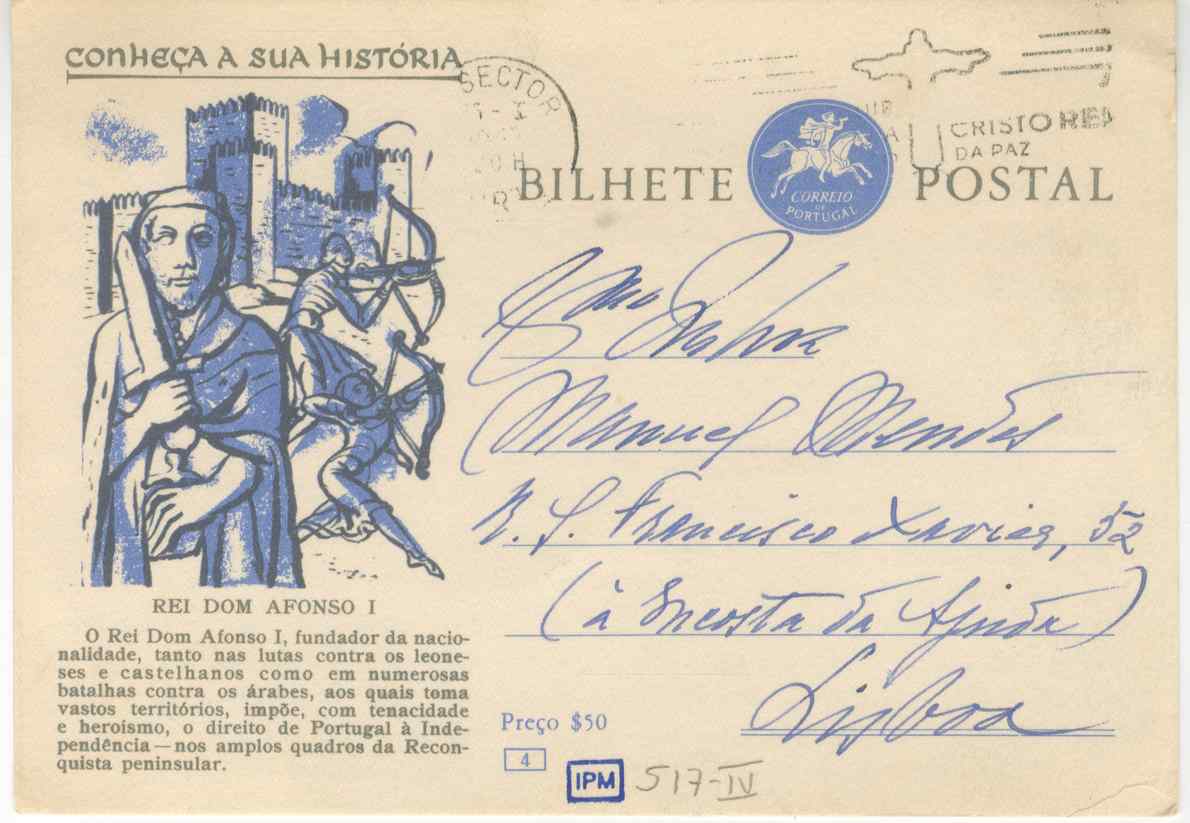 CONHEÇA A SUA HISTÓRIA
SECTOR
CRISTO REI
DA PAZ
BILHETE POSTAL
CORREIO
DE
PORTUGAL
Manuel Mendes
R. S. Francisco Xavier, 52
(à Encosta da Ajuda)
Lisboa
REI DOM AFONSO I
O Rei Dom Afonso I, fundador da nacio-
nalidade, tanto nas lutas contra os leone-
ses e castelhanos como em numerosas
batalhas contra os árabes, aos quais toma
vastos territórios, impõe, com tenacidade
e heroísmo, o direito de Portugal à Inde-
pendência — nos amplos quadros da Recon-
quista peninsular.
Preço $50
4
IPM 517-IV